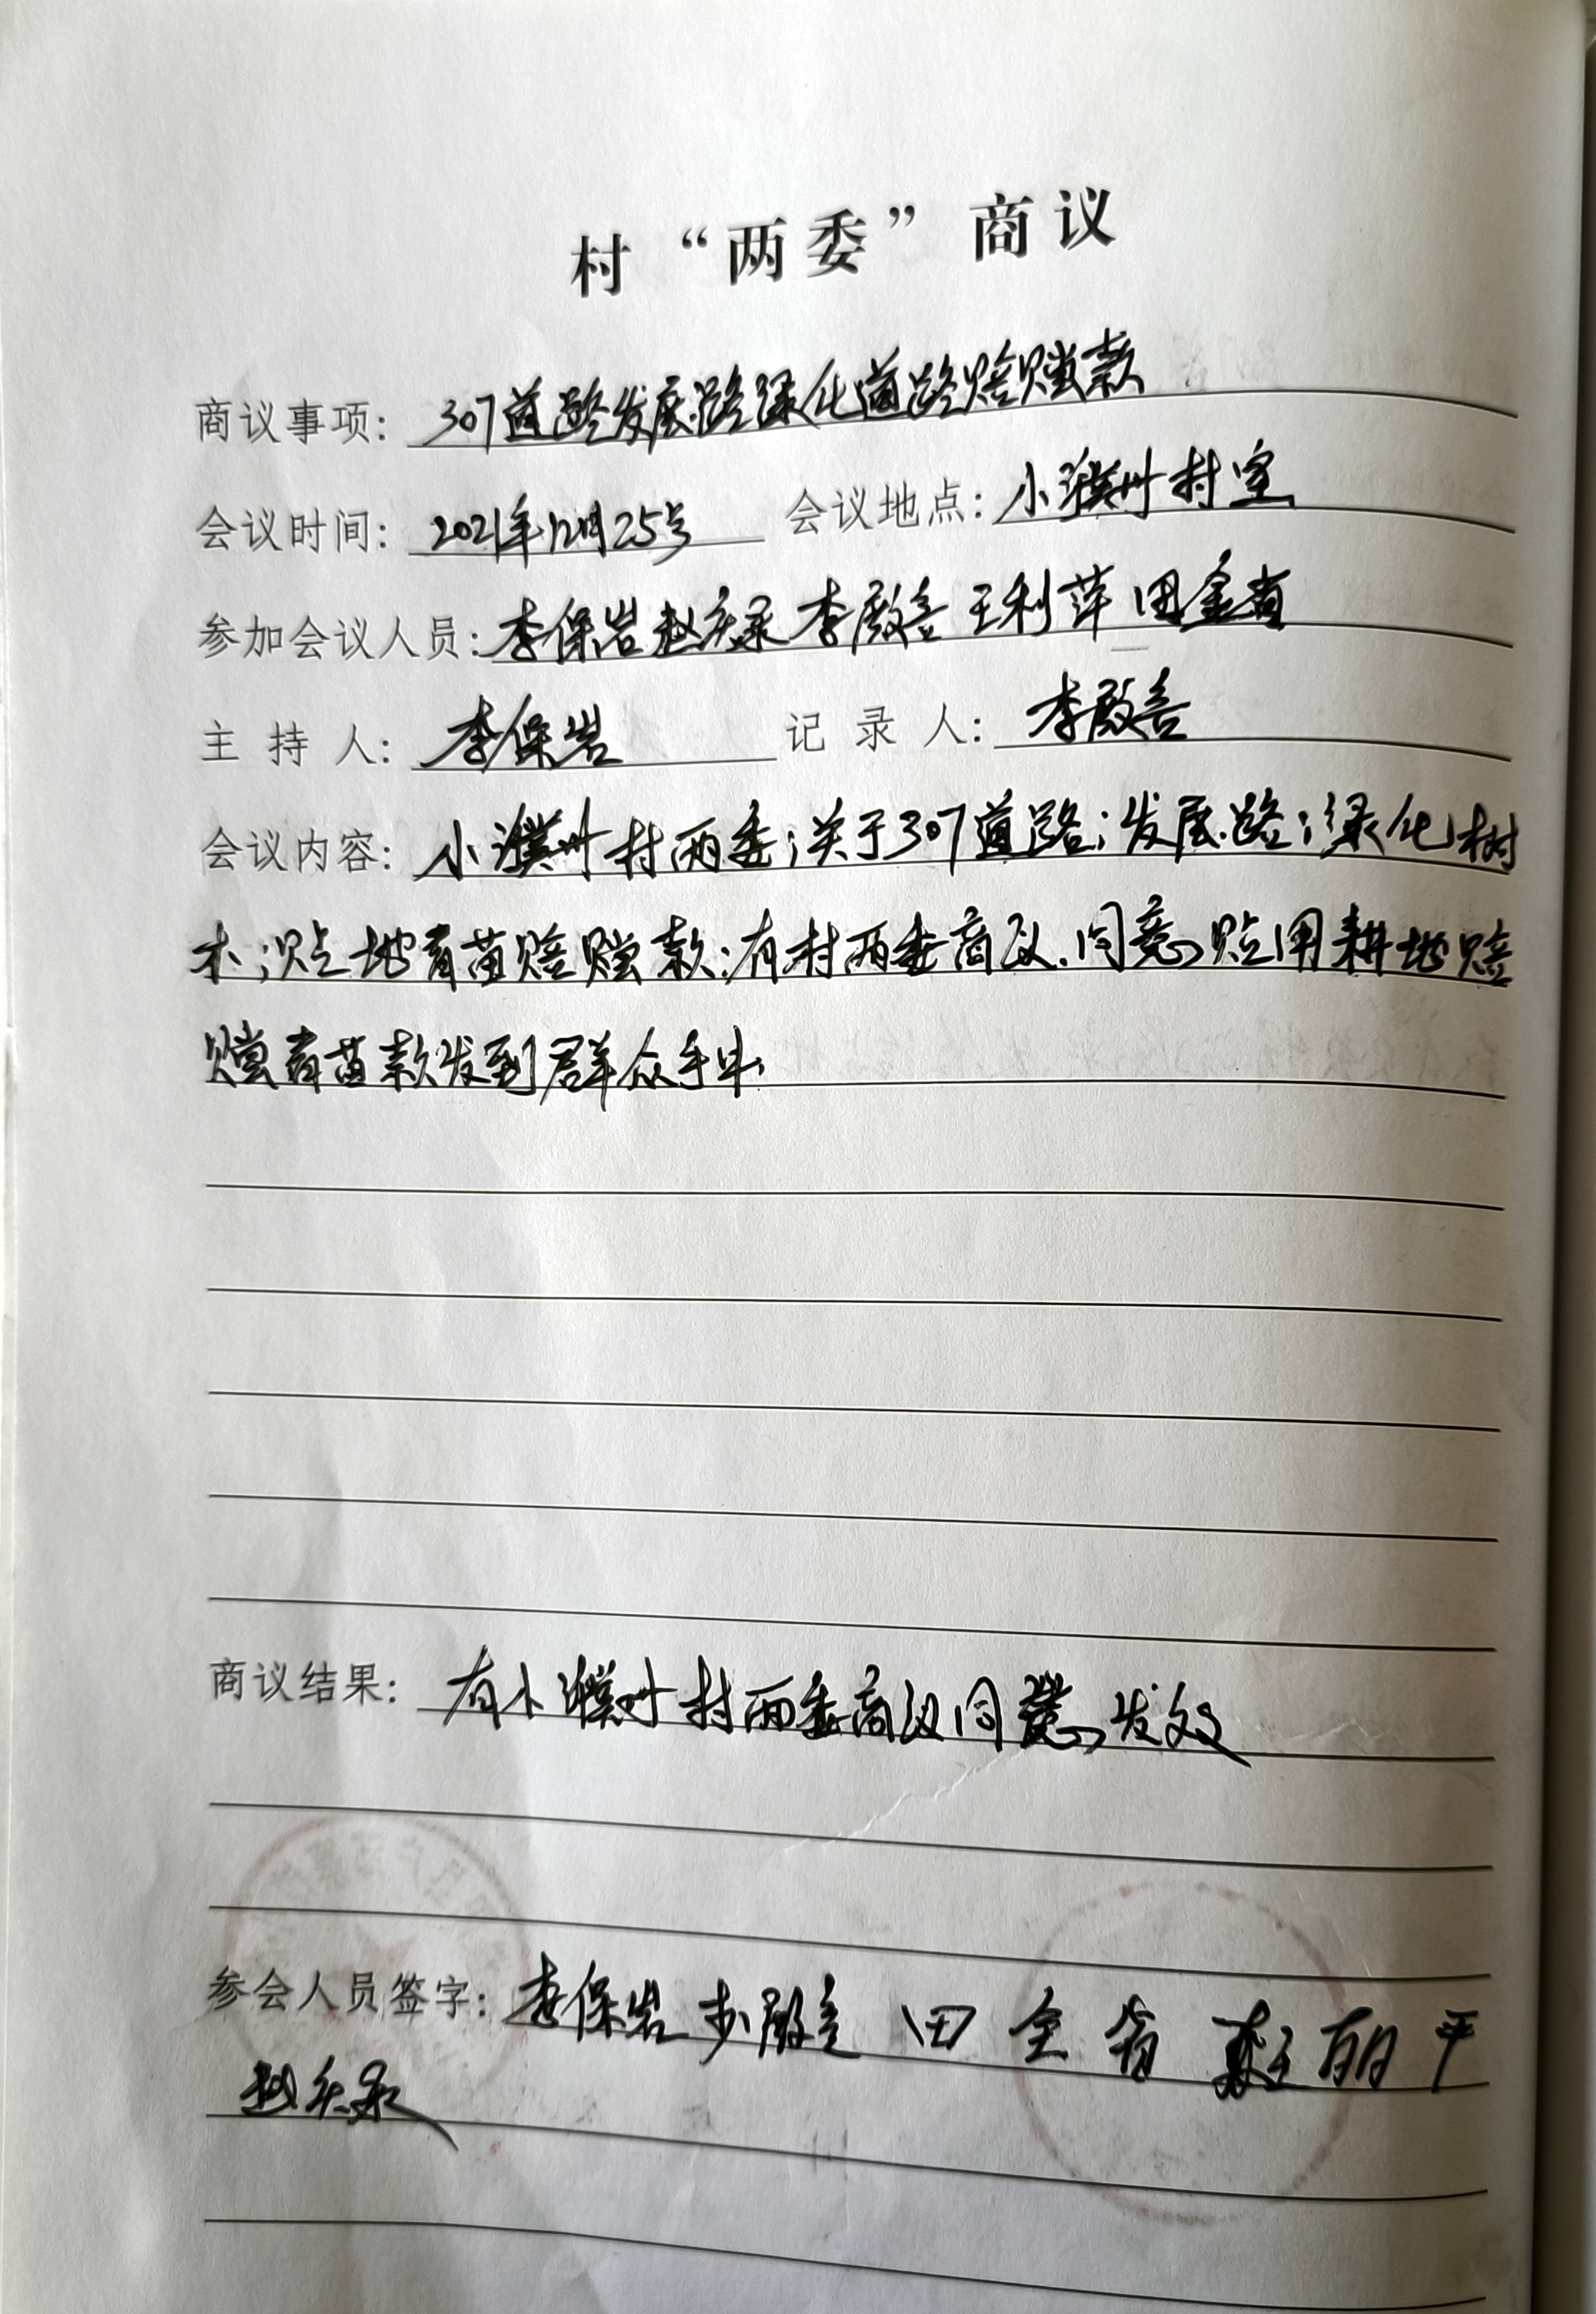 村“两委”商议
商议事项：307道路发展路绿化道路赔赏款
会议时间：2021年12月25号 会议地点：小濮州村室
参加会议人员：李保岩 赵庆录 李殿善 王利萍 田金省
主持人：李保岩 记录人：李殿善
会议内容：小濮州村两委；关于307道路；发展路；绿化树
木；占地青苗赔赏款；有村两委商议.同意占用耕地赔
赏青苗款发到群众手中.
商议结果：有小濮州村两委商议同意发放
参会人员签字：李保岩 李殿善 田金省 王丽平
赵庆录